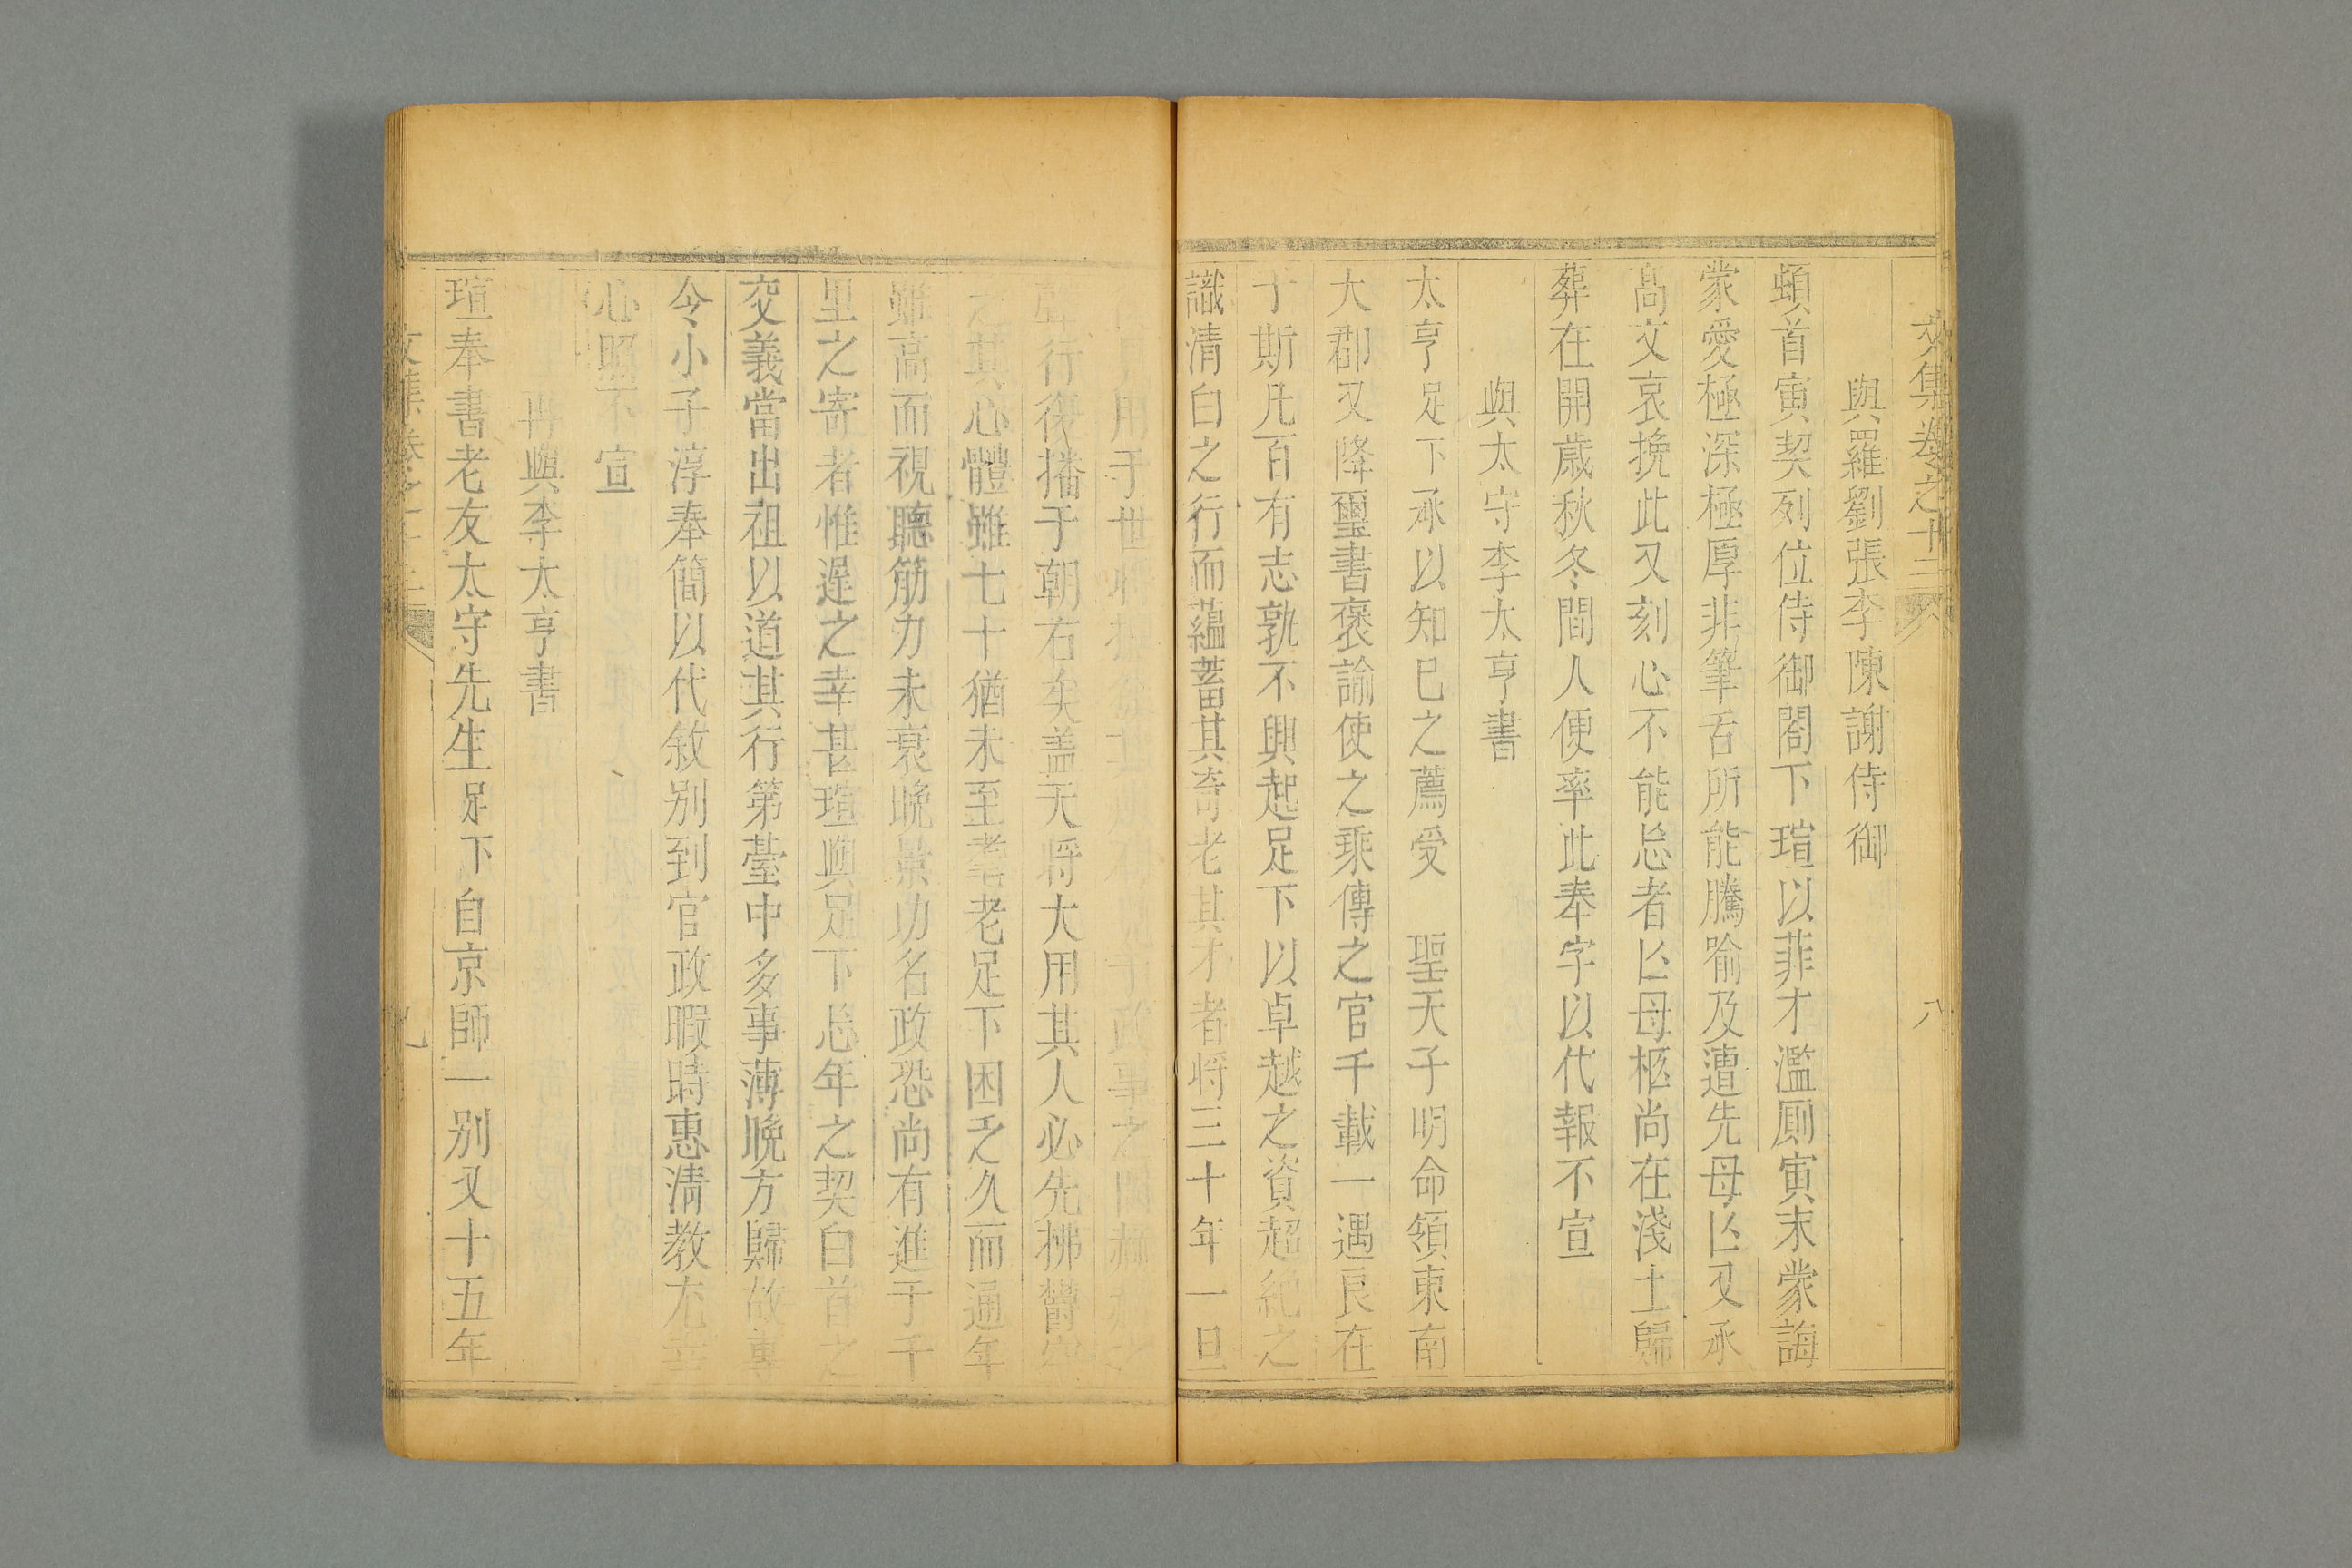 文集卷之十二
八
與羅劉張李陳謝侍御
頓首寅契列位侍御閤下瑄以菲才濫厠寅末蒙誨
蒙愛極深極厚非筆舌所能騰喻及遭先母亾又承
高文哀挽此又刻心不能忘者亾母柩尚在淺土歸
葬在開歳秋冬間人便率此奉字以代報不宣
與太守李太亨書
太亨足下承以知巳之薦受　聖天子明命領東南
大郡又降璽書褒諭使之乘傳之官千載一遇良在
于斯凡百有志孰不興起足下以卓越之資超絶之
識清白之行而蘊蓄其奇老其才者將三十年一旦
用于世 政事之間
聲行復播于朝右矣盖天將大用其人必先拂欝
其心體雖七十猶未至耄老足下困乏久而通年
雖高而視聽筋力未衰晩景功名政恐尚有進于千
里之寄者惟遅之幸甚瑄與足下忘年之契白首之
交義當出祖以道其行第臺中多事薄晩方歸故專
令小子淳奉簡以代敘别到官政暇時惠清教尤幸
心照不宣
再與李太亨書
瑄奉書老友太守先生足下自京師一别又十五年
文集卷之十二
九